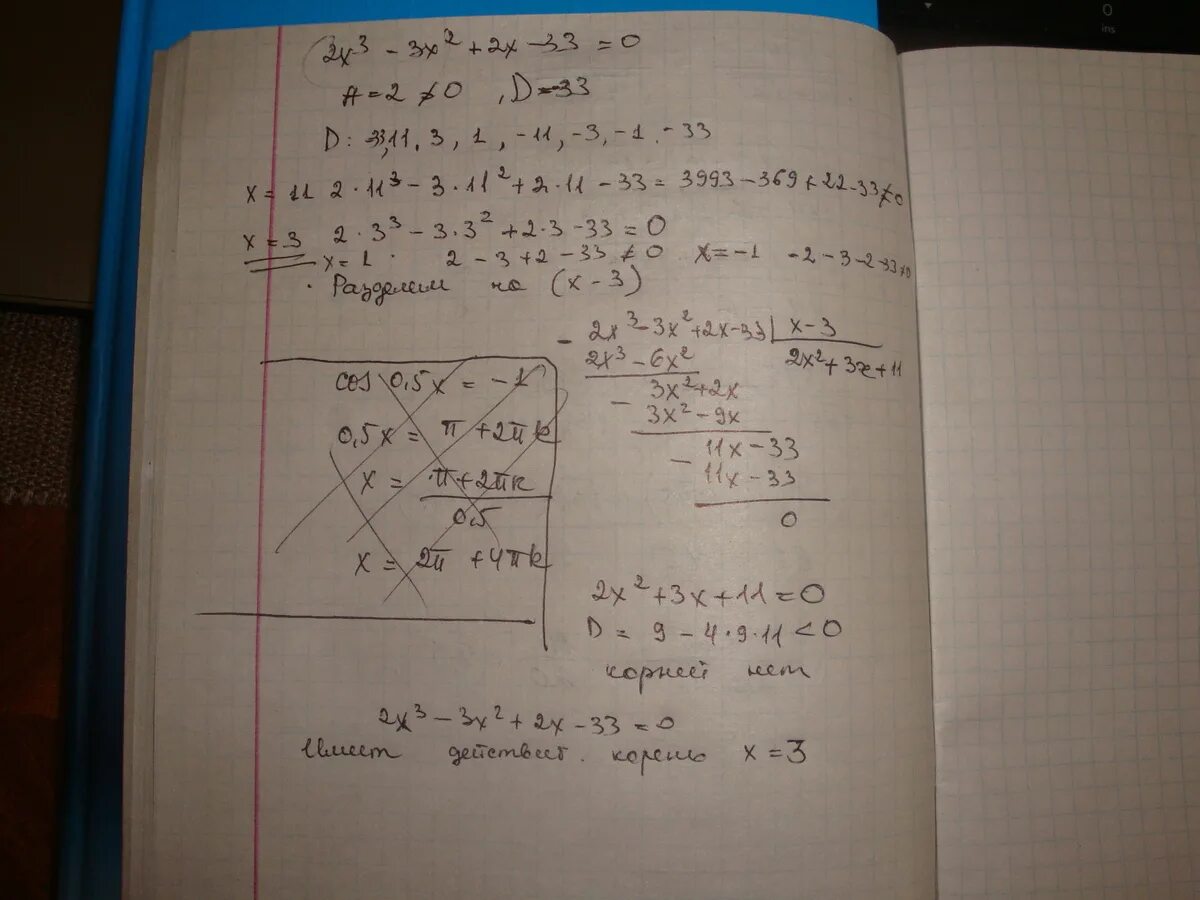 2x³ - 3x² + 2x - 33 = 0
A = 2 ≠ 0 , D = -33
D: 33, 11, 3, 1, -11, -3, -1, -33
x = 11 2·11³ - 3·11² + 2·11 - 33 = 3993 - 369 + 22 - 33 ≠ 0
x = 3 2·3³ - 3·3² + 2·3 - 33 = 0
x = 1 2 - 3 + 2 - 33 ≠ 0 x = -1 -2 - 3 - 2 - 33 ≠ 0
Разделим на (x - 3)
- 2x³ - 3x² + 2x - 33 | x - 3
2x³ - 6x² 2x² + 3x + 11
- 3x² + 2x
3x² - 9x
- 11x - 33
11x - 33
0
cos 0,5x = -1
0,5x = π + 2πk
x = π + 2πk
0,5
x = 2π + 4πk
2x² + 3x + 11 = 0
D = 9 - 4·9·11 < 0
корней нет
2x³ - 3x² + 2x - 33 = 0
Имеет действит. корень x = 3
0
ins